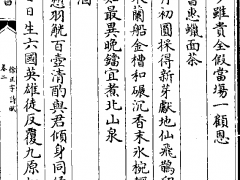 雖貴全假當場一顧恩
書惠蠟面茶
月初圓採得新芽獻地仙飛鵲
蘭船金槽和碾沉香末氷椀輕
知最異晚鐺宜煮北山泉
羽觥百壺清酌與君傾身同
日生六國英雄徒反覆九原
徐正字詩賦
卷二